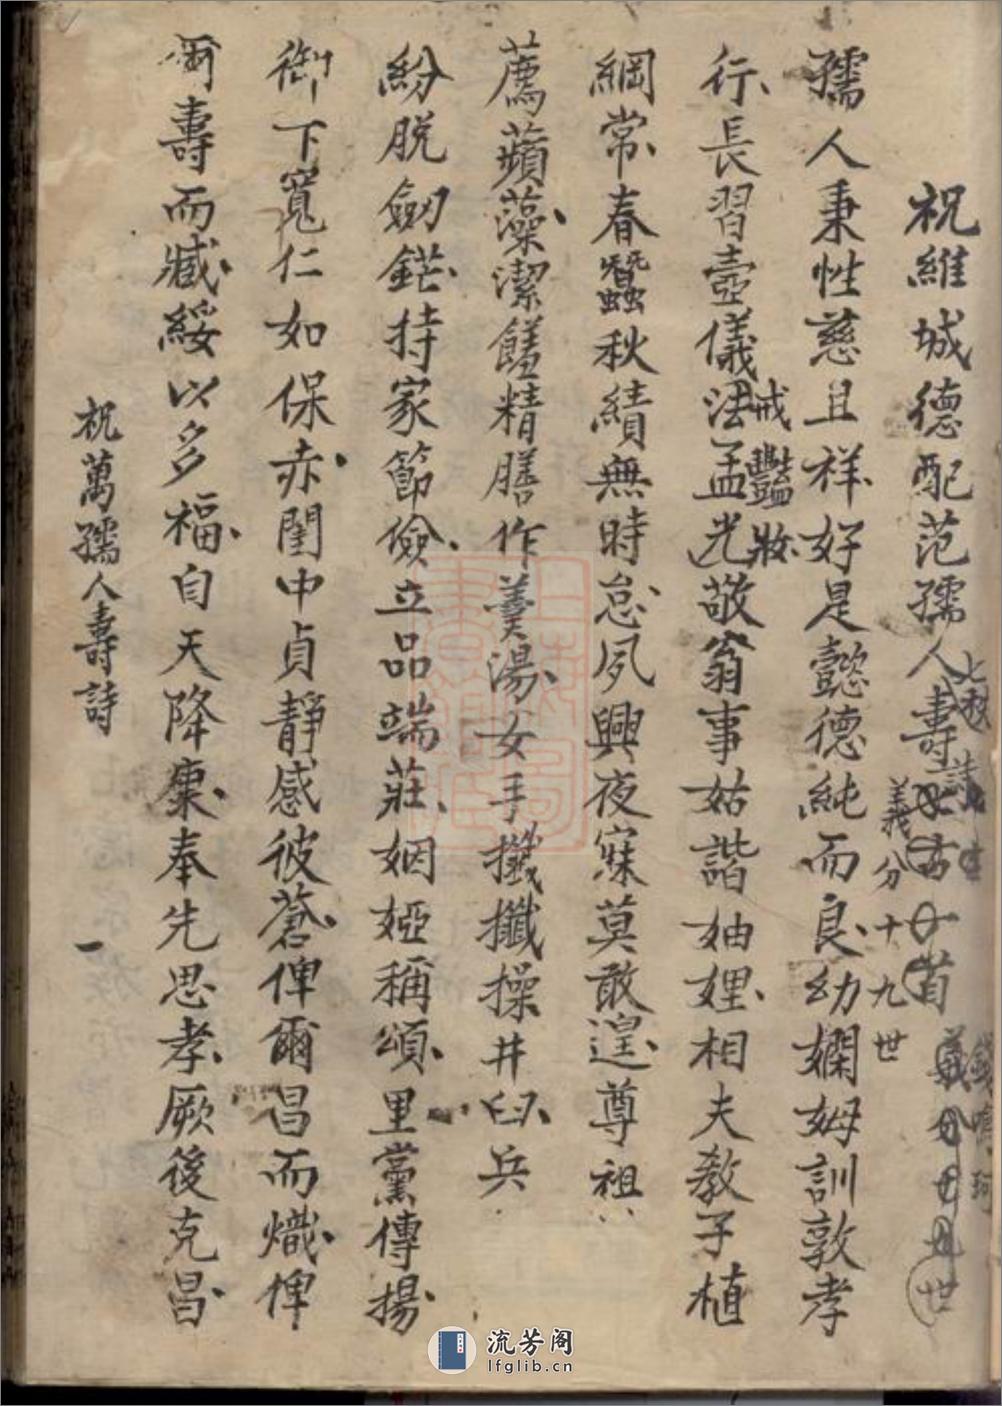 祝維城德配范孺人壽
七秩
詩
義分十九世
錢
孺人秉性慈且祥好是懿德純而良幼嫻姆訓敦孝
行長習壼儀法孟光敬翁事姑諧妯娌相夫教子植
戒豔妝
綱常春蠶秋績無時怠夙興夜寐莫敢遑尊祖
薦蘋藻潔饈精膳作羹湯女手攕攕操井臼兵
紛脫劒鋩持家節儉立品端莊姻婭稱頌里黨傳揚
御下寬仁如保赤閨中貞靜感彼蒼俾爾昌而熾俾
爾壽而臧綏以多福自天降康奉先思孝厥後克昌
祝萬孺人壽詩 一
流芳阁
lfglib.cn